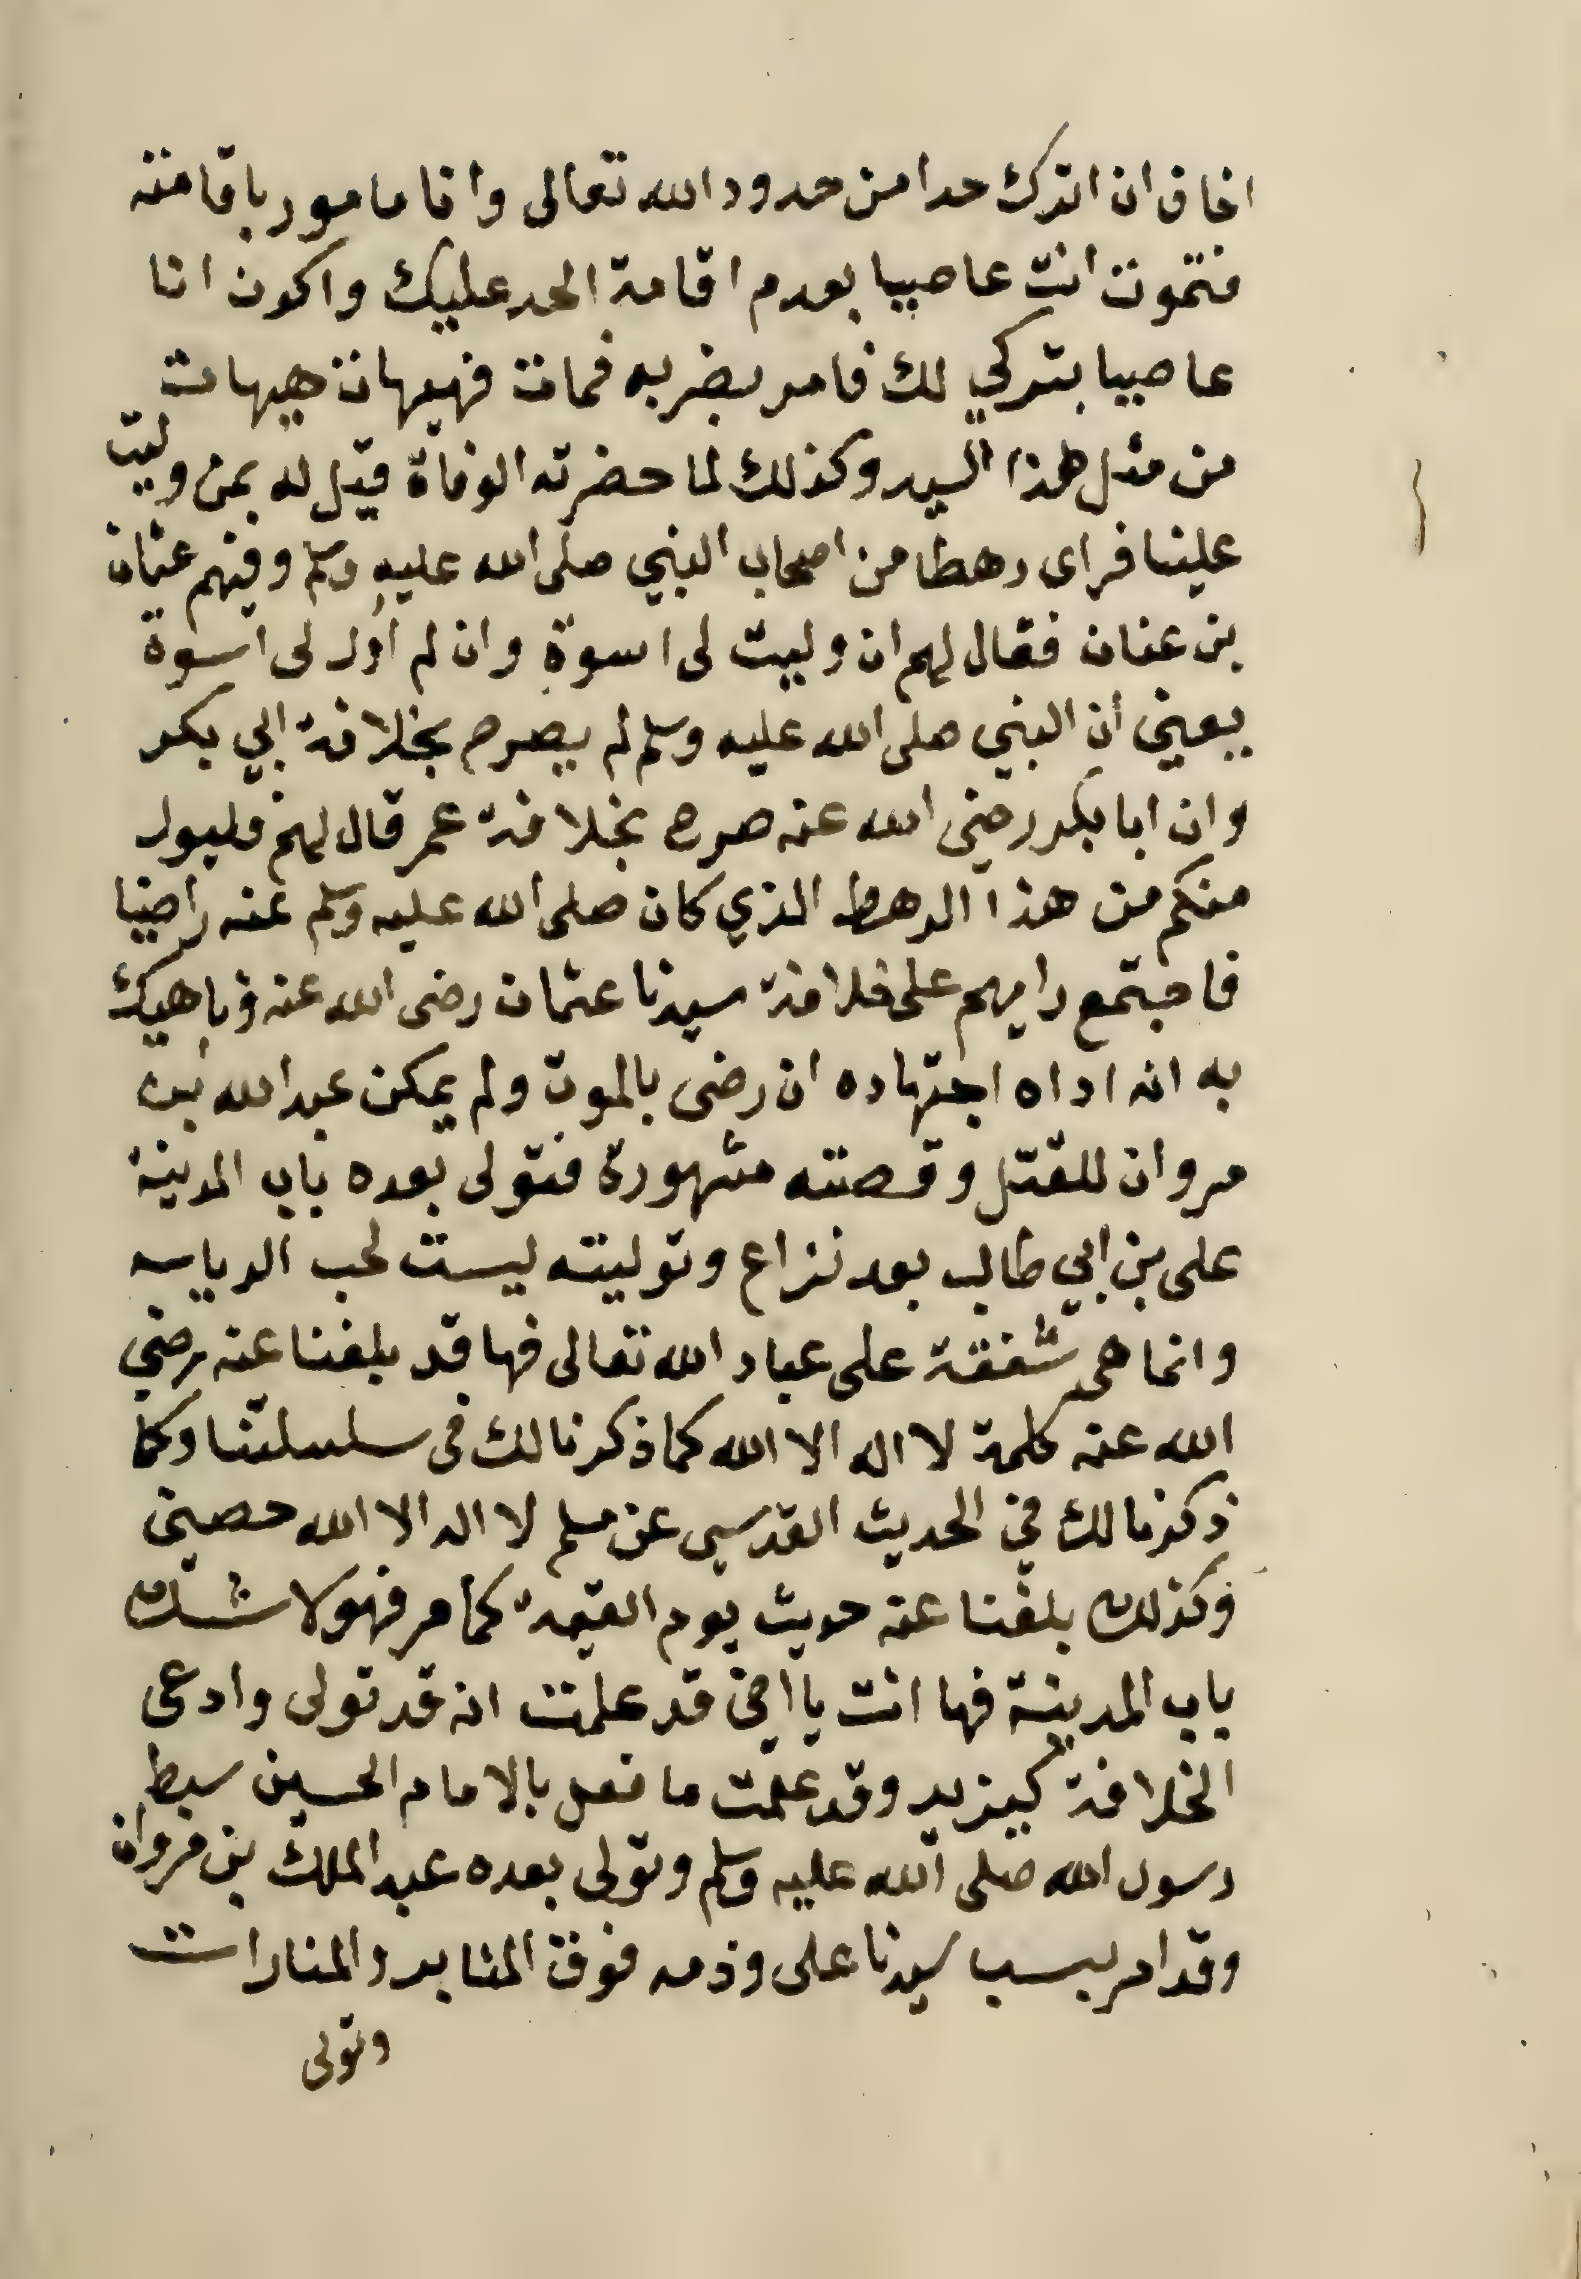 اخاف ان اترك حدا من حدود الله تعالى وانا مامور باقامته
فتموت انت عاصيا بعدم اقامة الحد عليك واكون انا
عاصيا بتركي لك فامر بضربه فمات فهيهات هيهات
من مثل هذا السيد وكذلك لما حضرته الوفاة قيل له بمن وليت
علينا فراى رهطا من اصحاب النبي صلى الله عليه وسلم وفيهم عثمان
بن عفان فقال لهم ان وليت لى اسوة وان لم أول لى اسوة
يعيني أن النبي صلى الله عليه وسلم لم يصرح بخلافة ابي بكر
وان ابا بكر رضى الله عنه صرح بخلافة عمر قال لهم فليول
منكم من هذا الرهط الذي كان صلى الله عليه وسلم عنه راضيا
فاجتمع رايهم على خلافة سيدنا عثمان رضى الله عنه وناهيك
به انه اداه اجتهاده ان رضى بالموت ولم يمكن عبد الله بن
مروان للقتل وقصته مشهورة فتولى بعده باب المدينة
على بن ابي طالب بعد نزاع وتوليته ليست لحب الرياسه
وانما هى شفقة على عباد الله تعالى فها قد بلغنا عنه رضي
الله عنه كلمة لا اله الا الله كما ذكرنا لك فى سلسلتنا وكما
ذكرنا لك في الحديث القدسى عن مسلم لا اله الا الله حصنى
وكذلك بلغنا عنه حديث يوم القيمة كما مر فهو لا شك
باب المدينة فها انت يا اخى قد علمت انه قد تولى وادعى
الخلافة كيزيد وقد علمت ما فعل بالامام الحسين سبط
رسول الله صلى الله عليه وسلم وتولى بعده عبد الملك بن مروان
وقد امر بسب سيدنا على وذمه فوق المنابر والمنارات
وتولى